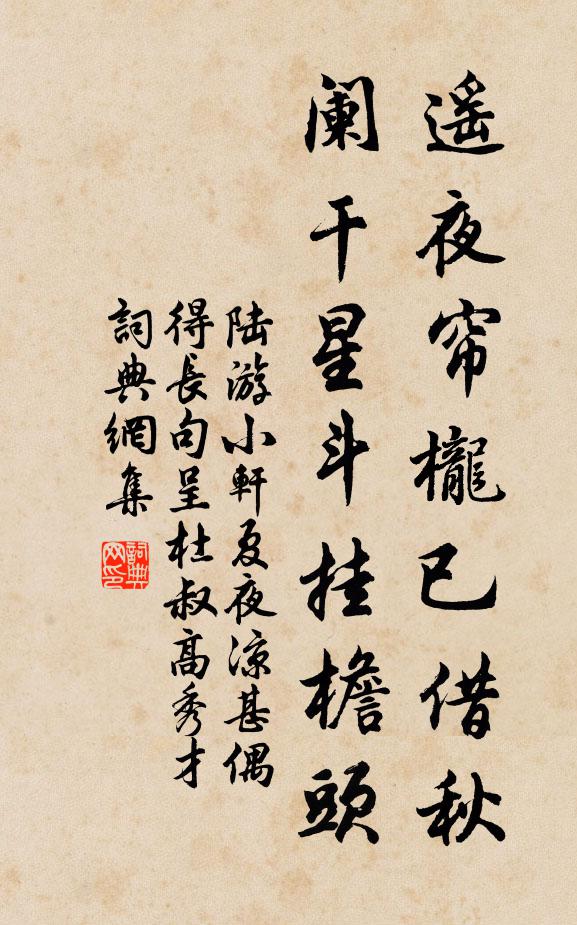 遥夜帘櫳已借秋
阑干星斗挂檐頭
陆游小軒夏夜凉甚偶
得長句呈杜叔高秀才
詞典網集
詞典网印